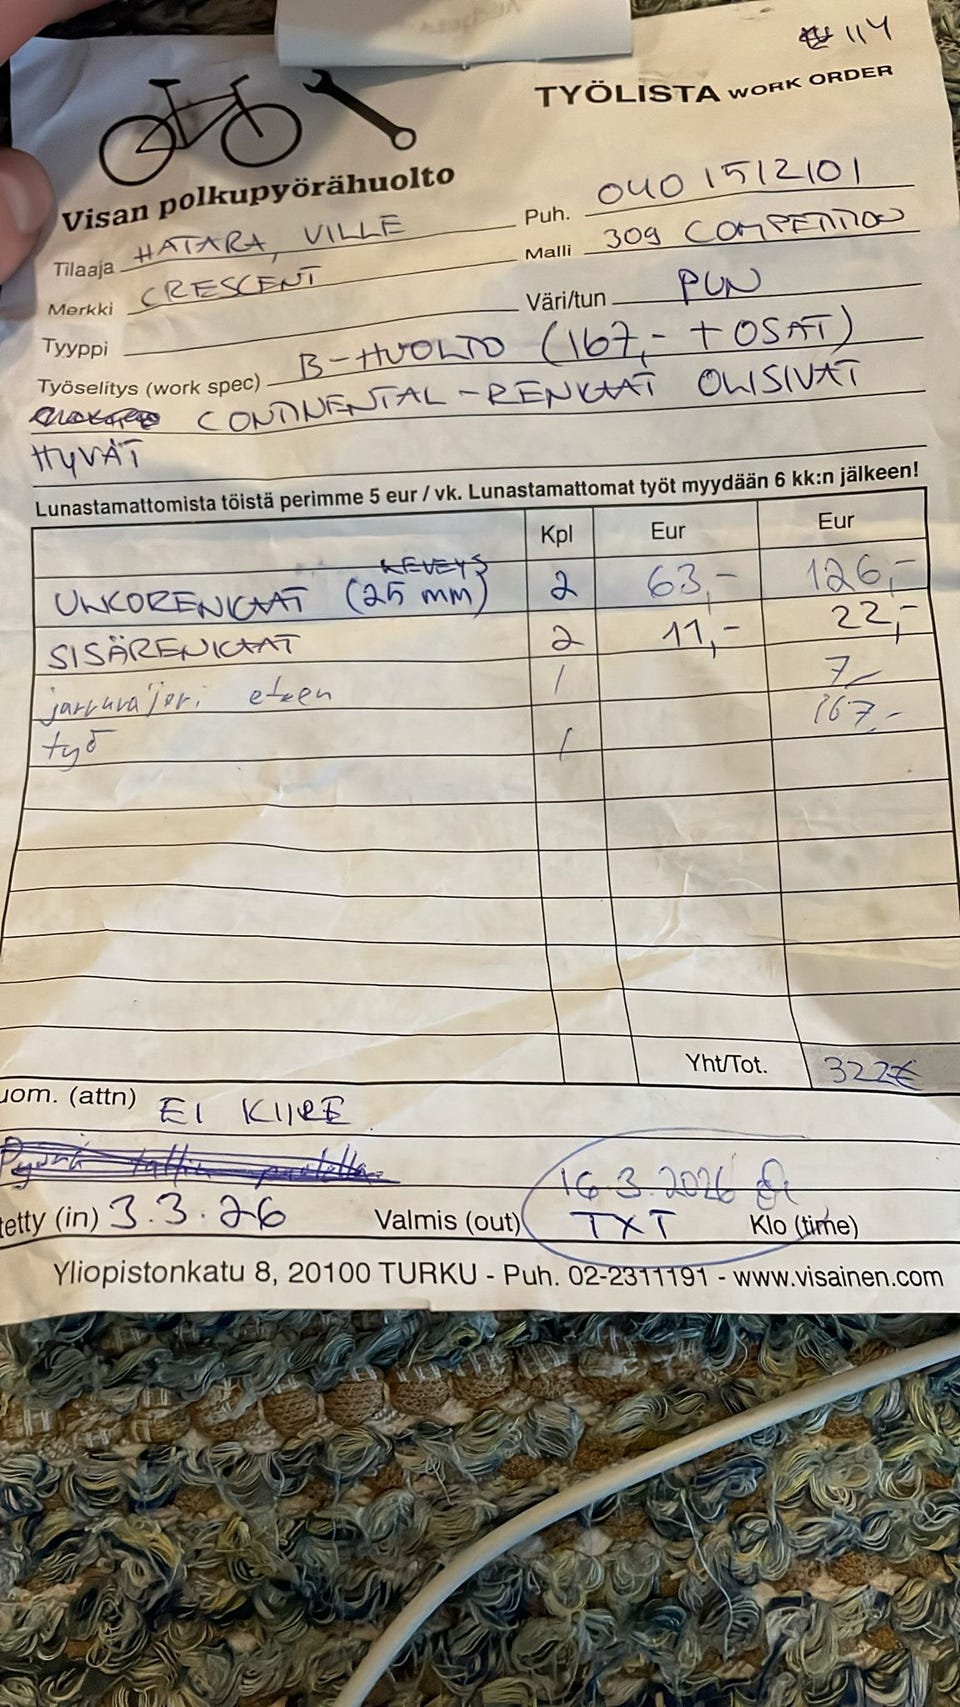 114
TYÖLISTA WORK ORDER
Visan polkupyörähuolto
Tilaaja HATARA, VILLE Puh. 040 1512101
Merkki CRESCENT Malli 309 COMPETITION
Tyyppi Väri/tun PUN
Työselitys (work spec) B-HUOLTO (167,- + OSAT)
CONTINENTAL-RENKAAT OLISIVAT
HYVÄT
Lunastamattomista töistä perimme 5 eur / vk. Lunastamattomat työt myydään 6 kk:n jälkeen!
Kpl Eur Eur
UKKORENKAAT (25 mm) 2 63,- 126,-
SISÄRENKAAT 2 11,- 22,-
jarruvaijeri eteen 1 7,-
työ 1 167,-
Yht/Tot. 322€
uom. (attn) EI KIIRE
16.3.2026
tetty (in) 3.3.26 Valmis (out) TXT Klo (time)
Yliopistonkatu 8, 20100 TURKU - Puh. 02-2311191 - www.visainen.com